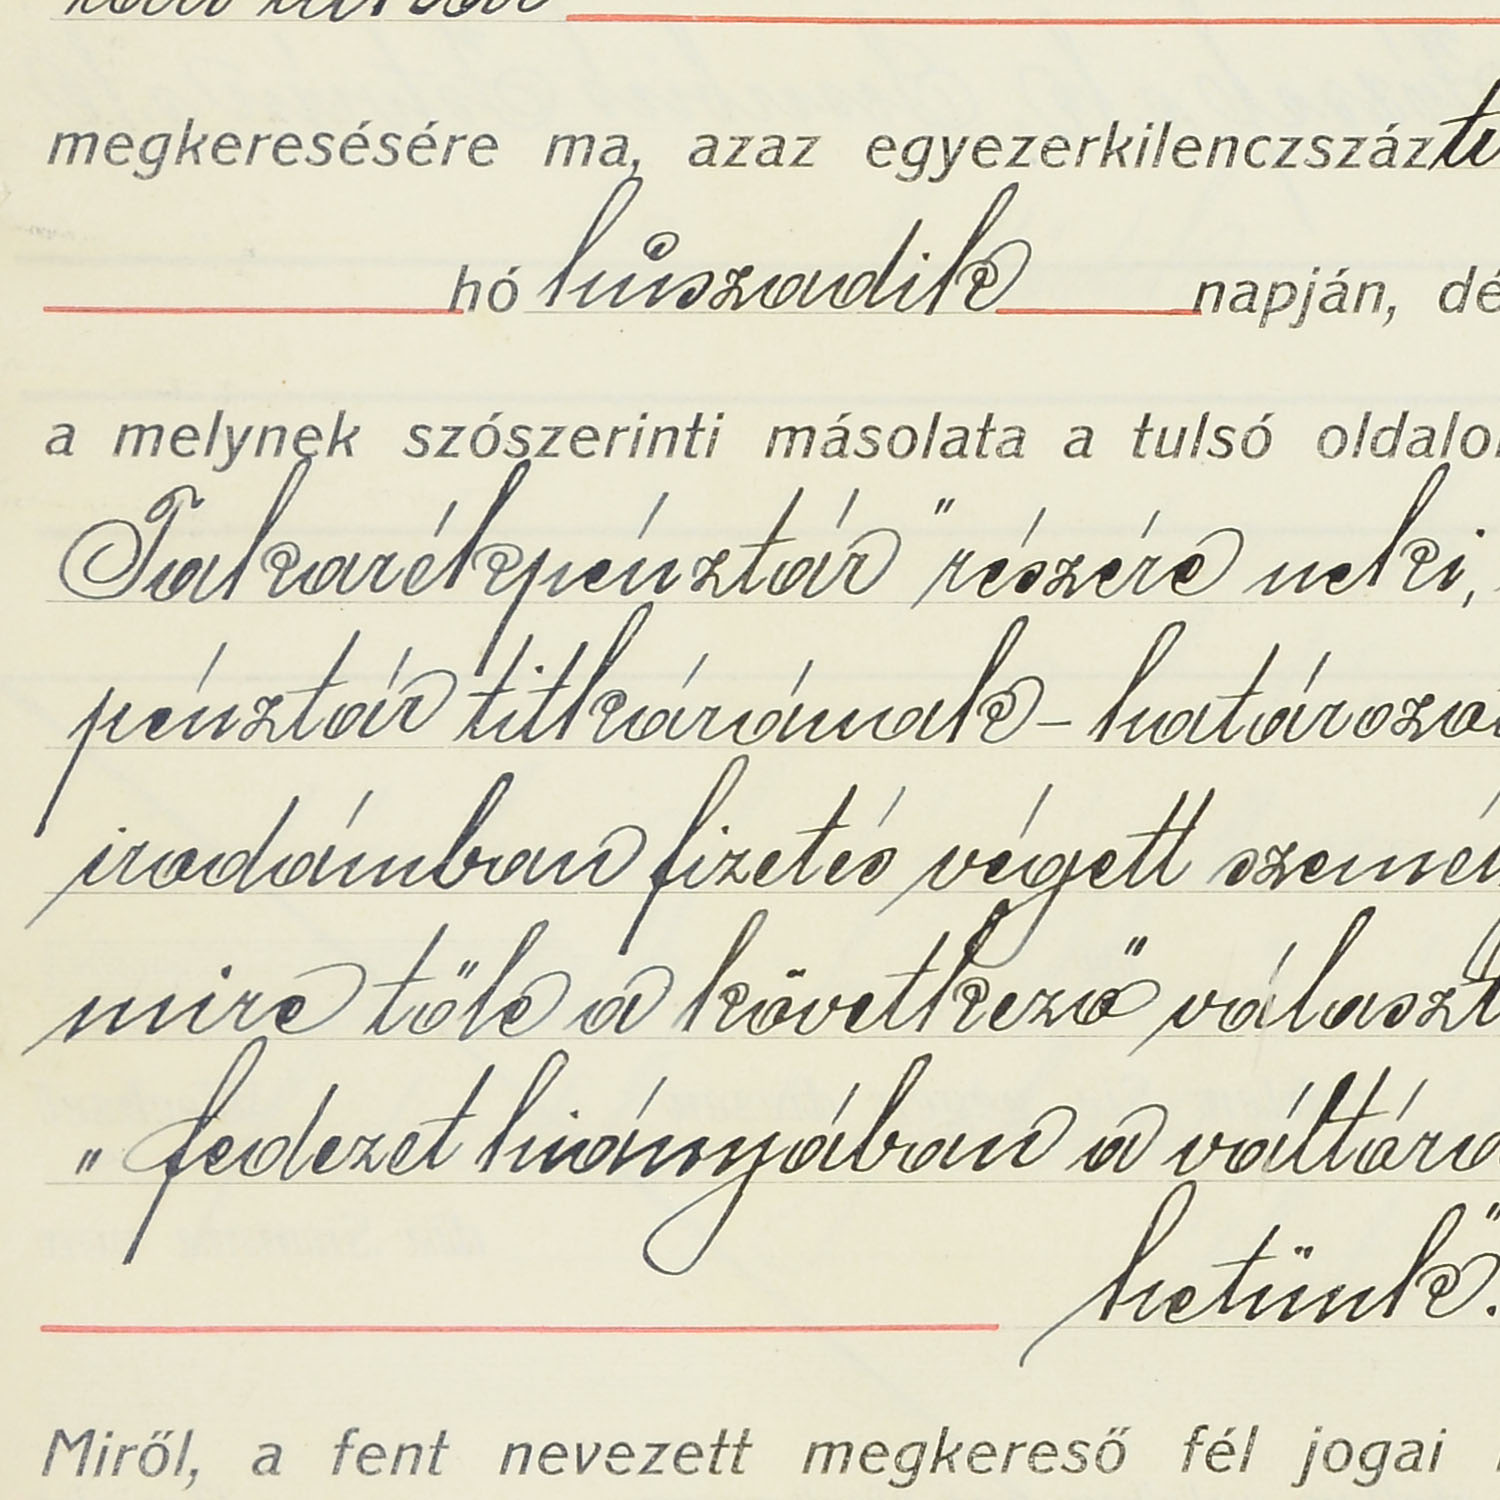 megkeresésére ma, azaz egyezerkilenczszázti
hó húszadik napján, dé
a melynek szószerinti másolata a tulsó oldalon
Takarékpénztár" részére neki,
pénztár titkárának - határoza
irodámban fizetés végett szemé
mire tőle a következő választ
"fedezet hiányában a váltára
hetünk".
Miről, a fent nevezett megkereső fél jogai